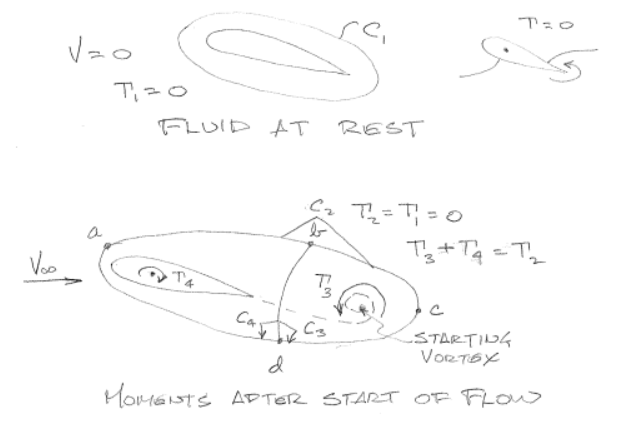 V=0
T₁=0
C₁
T=0
FLUID AT REST
C₂
T₂=T₁=0
T₃+T₄=T₂
a
b
V∞
T₄
T₃
c
C₄
C₃
STARTING
VORTEX
d
MOMENTS AFTER START OF FLOW